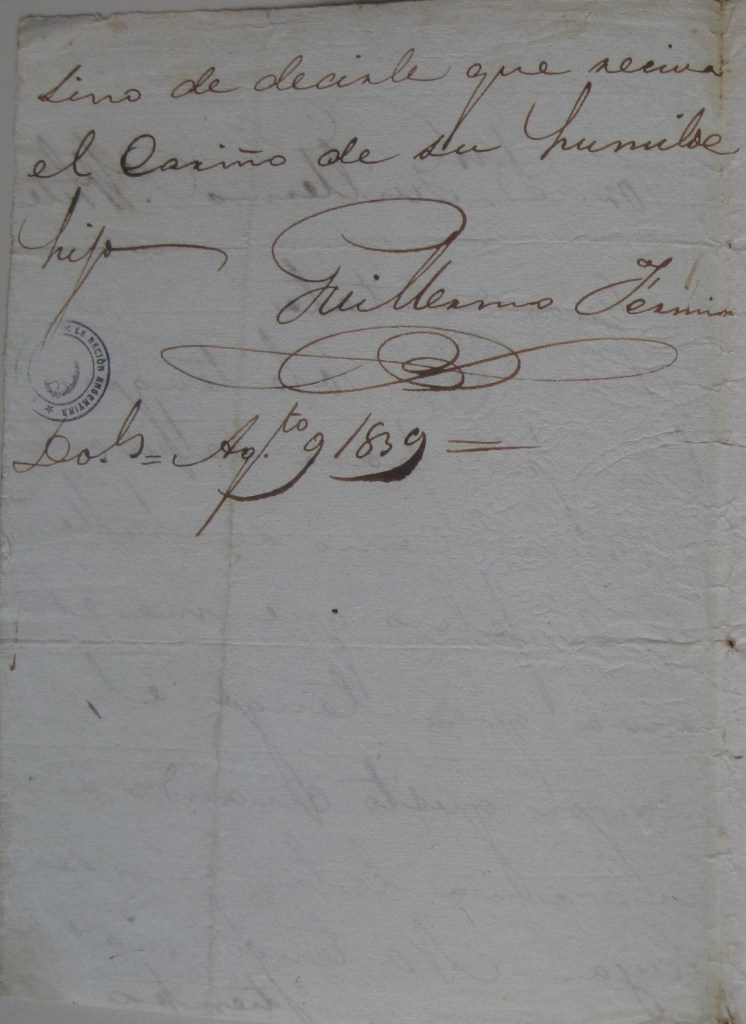 sino de decirle que reciva
el Cariño de su humilde
hijo
Guillermo Fermin
DE LA NACIÓN ARGENTINA
Ag.to 9 1839